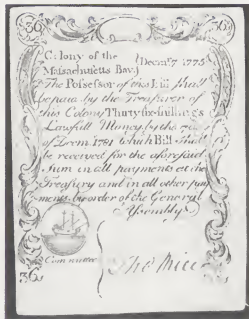 36s 36s
Colony of the Decem.r 7 1775
Massachusetts Bay
The Possessor of this Bill shall
be paid by the Treasurer of
this Colony Thirty six shillings
Lawfull Money by the
of Decm. 1781 which Bill shall
be received for the aforesaid
Sum in all payments at the
Treasury and in all other pay
ments by order of the General
Assembly
Committee
36s 36s